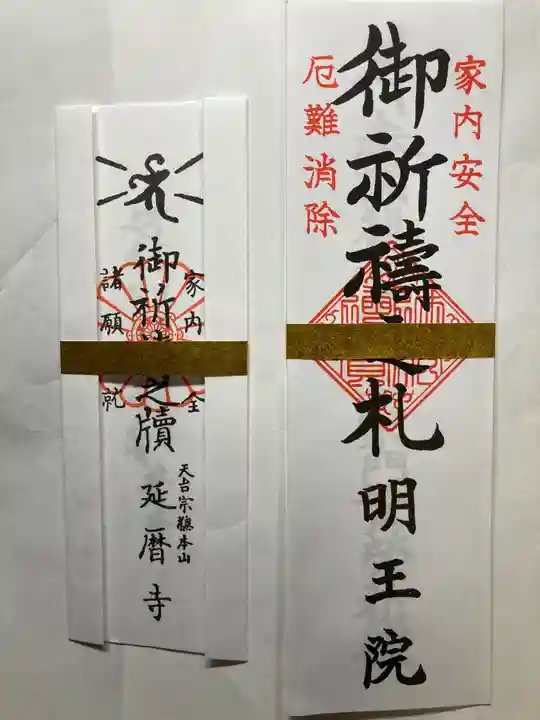 家内安全
御祈禱之札
明王院
厄難消除
家内 全
御祈 之牘
諸願 就
天台宗總本山
延暦寺